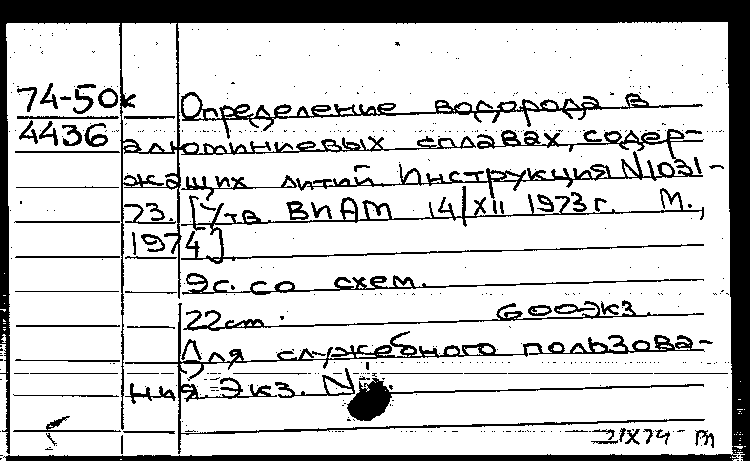 74-50к Определение водорода в
4436 алюминиевых сплавах, содер-
жащих литий. Инструкция N1031-
73. [Утв. ВИАМ 14/XII 1973 г. М.,
1974].
9с. со схем.
22см. 600экз.
Для служебного пользова-
ния. Экз. №
21X74